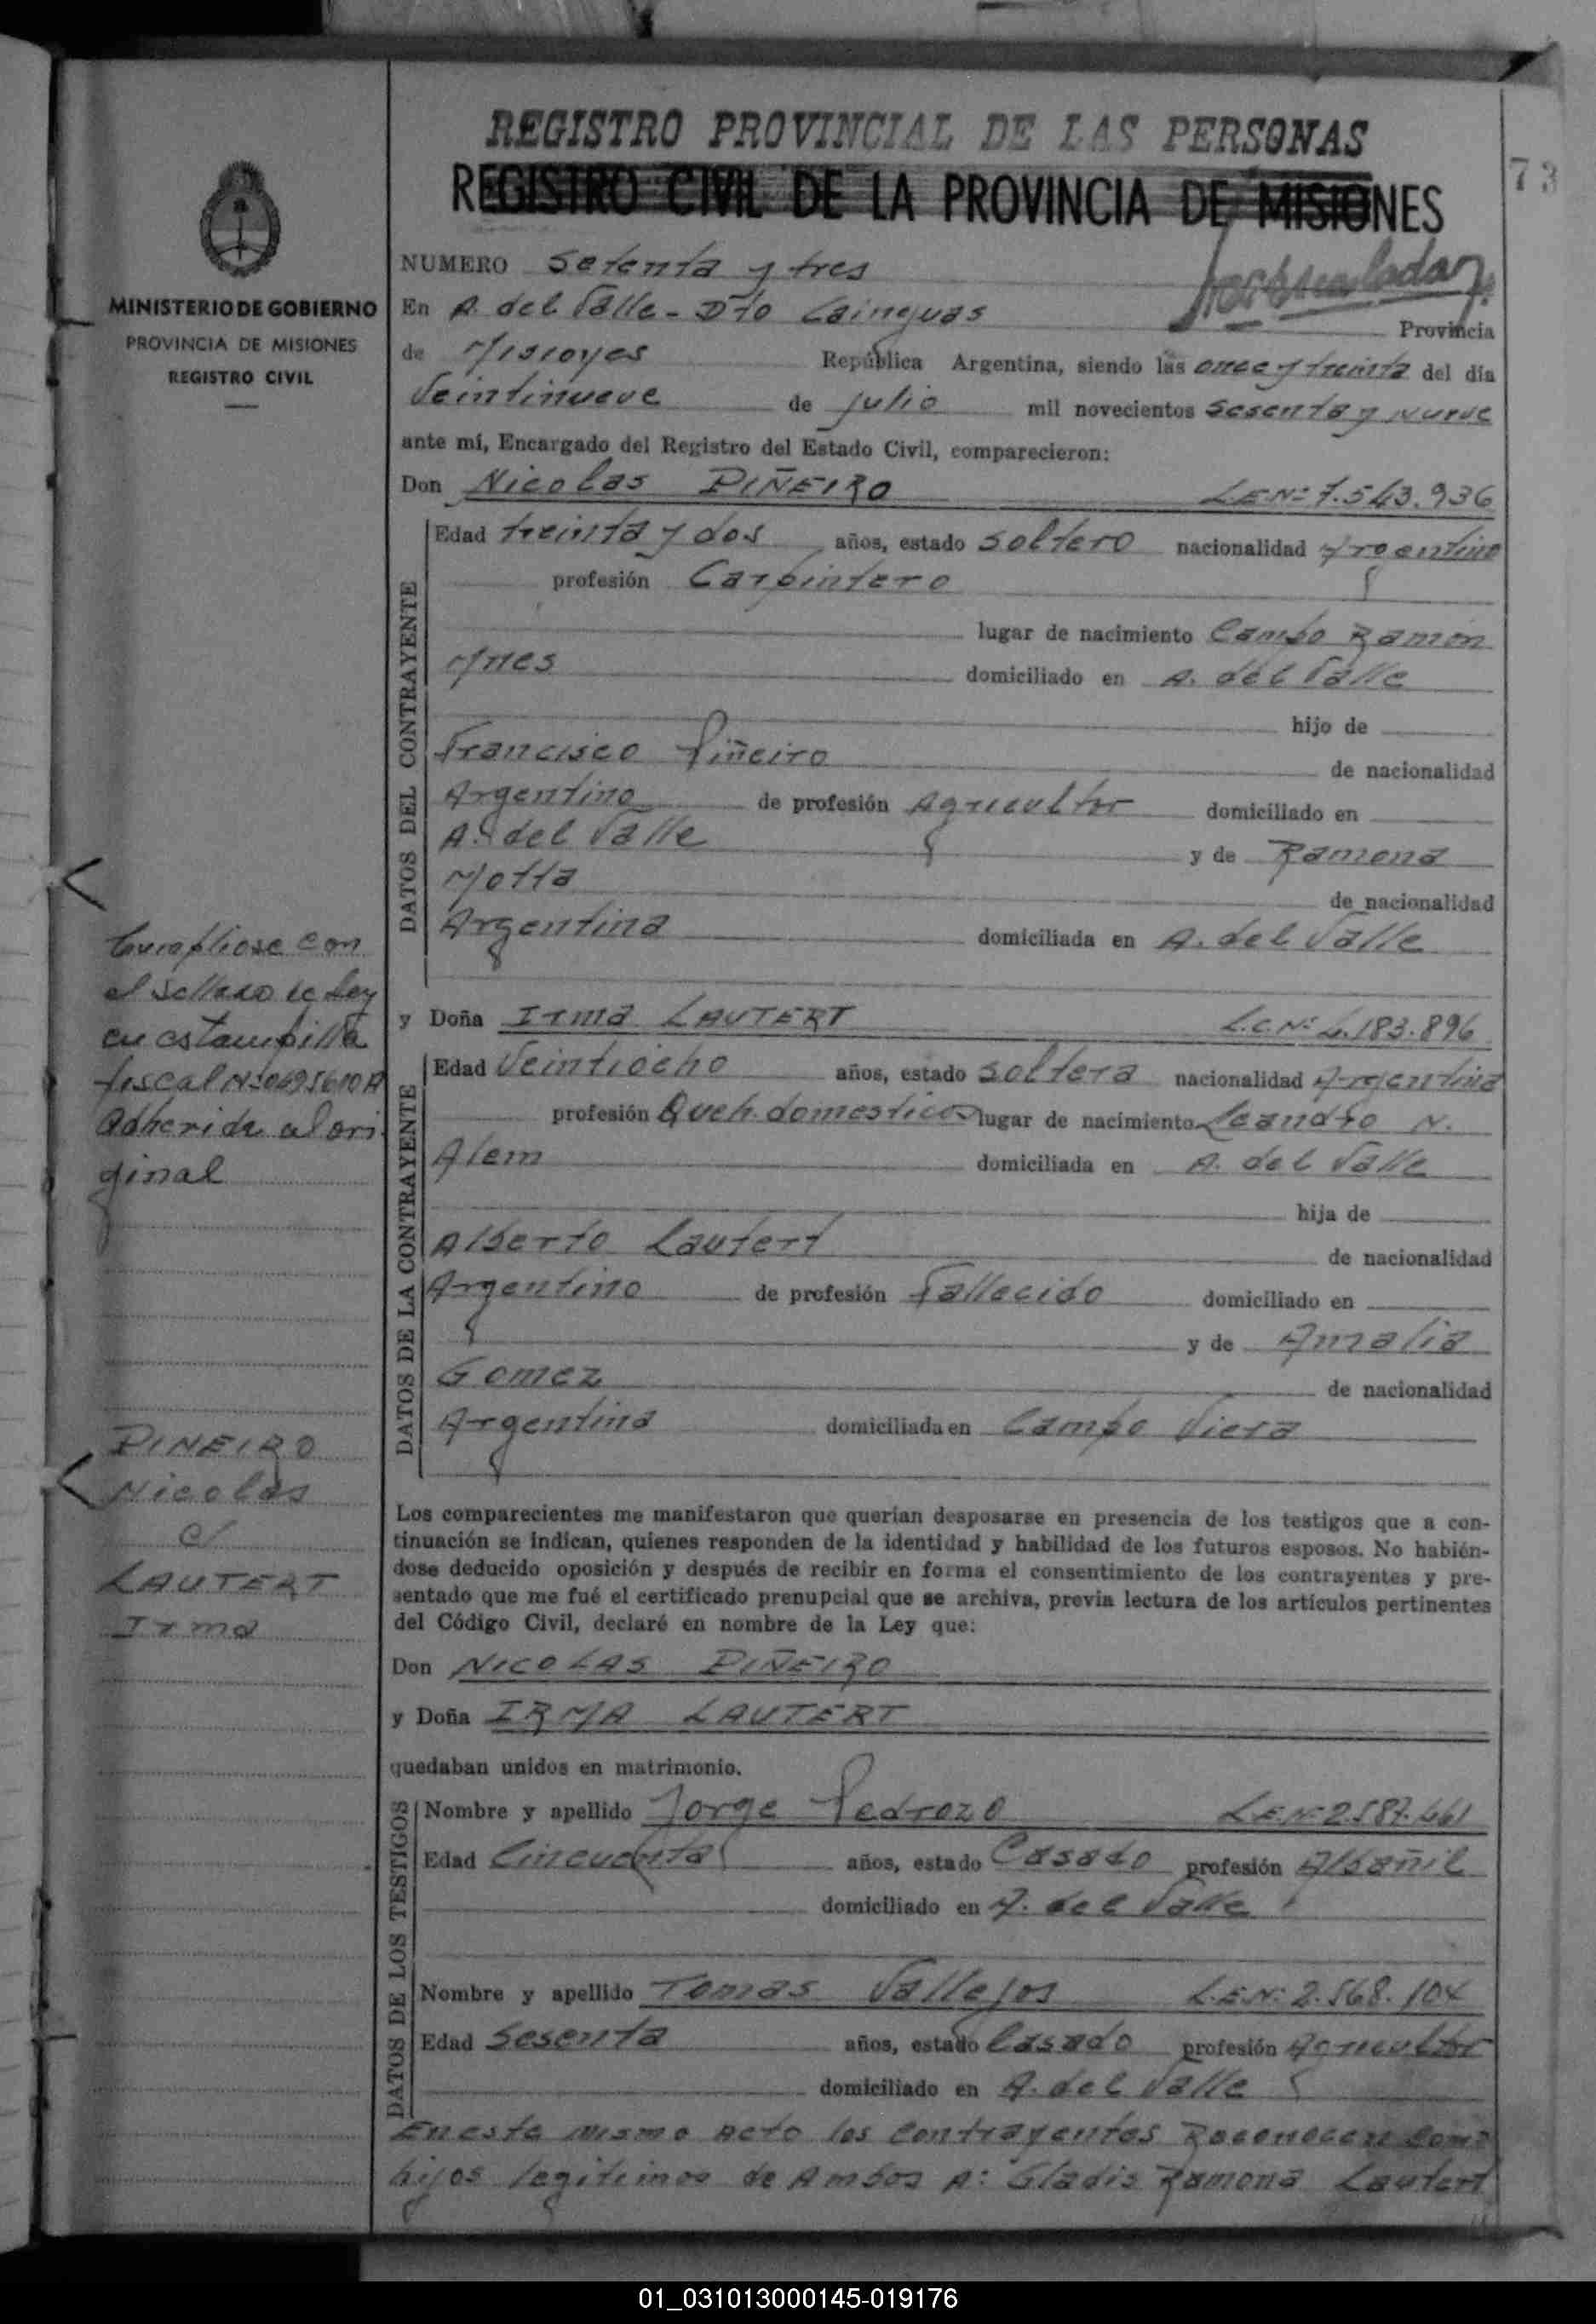 REGISTRO PROVINCIAL DE LAS PERSONAS
REGISTRO CIVIL DE LA PROVINCIA DE MISIONES
73
MINISTERIO DE GOBIERNO
PROVINCIA DE MISIONES
REGISTRO CIVIL
NUMERO Setenta y tres
En A. del Valle - Dto Cainguas Provincia
de Misiones República Argentina, siendo las once y treinta del día
Veintinueve de julio mil novecientos sesenta y nueve
ante mí, Encargado del Registro del Estado Civil, comparecieron:
Don Nicolas PIÑEIRO L.E.Nº 7.543.936
DATOS DEL CONTRAYENTE
Edad treinta y dos años, estado soltero nacionalidad Argentino
profesión Carpintero
lugar de nacimiento Campo Ramon
Mnes domiciliado en A. del Valle
hijo de
Francisco Piñeiro de nacionalidad
Argentino de profesión Agricultor domiciliado en
A. del Valle y de Ramona
Motta de nacionalidad
Argentina domiciliada en A. del Valle
y Doña Irma LAUTERT L.C.Nº 4.183.896
DATOS DE LA CONTRAYENTE
Edad Veintiocho años, estado soltera nacionalidad Argentina
profesión Queh. domesticos lugar de nacimiento Leandro N.
Alem domiciliada en A. del Valle
hija de
Alberto Lautert de nacionalidad
Argentino de profesión Fallecido domiciliado en
y de Amalia
Gomez de nacionalidad
Argentina domiciliada en Campo Viera
Los comparecientes me manifestaron que querían desposarse en presencia de los testigos que a con-
tinuación se indican, quienes responden de la identidad y habilidad de los futuros esposos. No habién-
dose deducido oposición y después de recibir en forma el consentimiento de los contrayentes y pre-
sentado que me fué el certificado prenupcial que se archiva, previa lectura de los artículos pertinentes
del Código Civil, declaré en nombre de la Ley que:
Don NICOLAS PIÑEIRO
y Doña IRMA LAUTERT
quedaban unidos en matrimonio.
DATOS DE LOS TESTIGOS
Nombre y apellido Jorge Pedrozo L.E.Nº 2.587.461
Edad Cincuenta años, estado Casado profesión Albañil
domiciliado en A. del Valle
Nombre y apellido Tomas Vallejos L.E.Nº 2.568.104
Edad Sesenta años, estado Casado profesión Agricultor
domiciliado en A. del Valle
En este mismo acto los contrayentes Reconocen como
hijos legitimos de Ambos A: Gladis Ramona Lautert
Cumpliose con
el sellado de Ley
en estampilla
fiscal Nº 0495610A
adherida al ori
ginal
PIÑEIRO
Nicolas
c/
LAUTERT
Irma
01_031013000145-019176